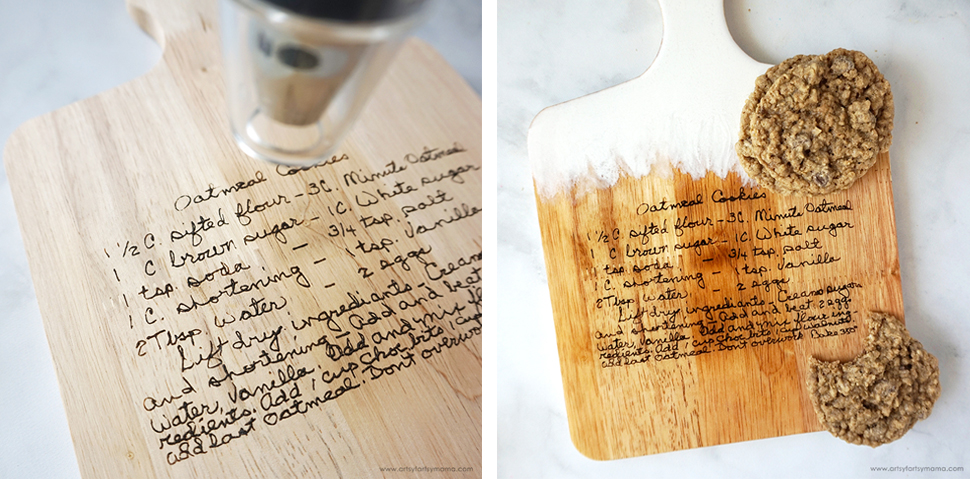 Oatmeal Cookies
1 1/2 C. sifted flour - 3C. Minute Oatmeal
1 C brown sugar - 1C. White sugar
1 tsp. soda - 3/4 tsp. salt
1 C. shortening - 1 tsp. Vanilla
2 Tbsp. water - 2 eggs
Sift dry ingredients - Cream
and shortening - Add and beat
water, vanilla. Add and mix
redients. Add 1 cup Choc bits, 1 cup
add last Oatmeal. Don't overwork
www.artsyfartsymama.com
Oatmeal Cookies
1 1/2 C. sifted flour - 3C. Minute Oatmeal
1 C brown sugar - 1C. White sugar
1 tsp. soda - 3/4 tsp. salt
1 C. shortening - 1 tsp. Vanilla
2 Tbsp. water - 2 eggs
Sift dry ingredients - Cream sugars
and shortening - Add and beat 2 eggs
water, vanilla. Add and mix flour ing
redients. Add 1 cup Choc bits, 1 cup walnuts
add last Oatmeal. Don't overwork. Bake 350°
www.artsyfartsymama.com